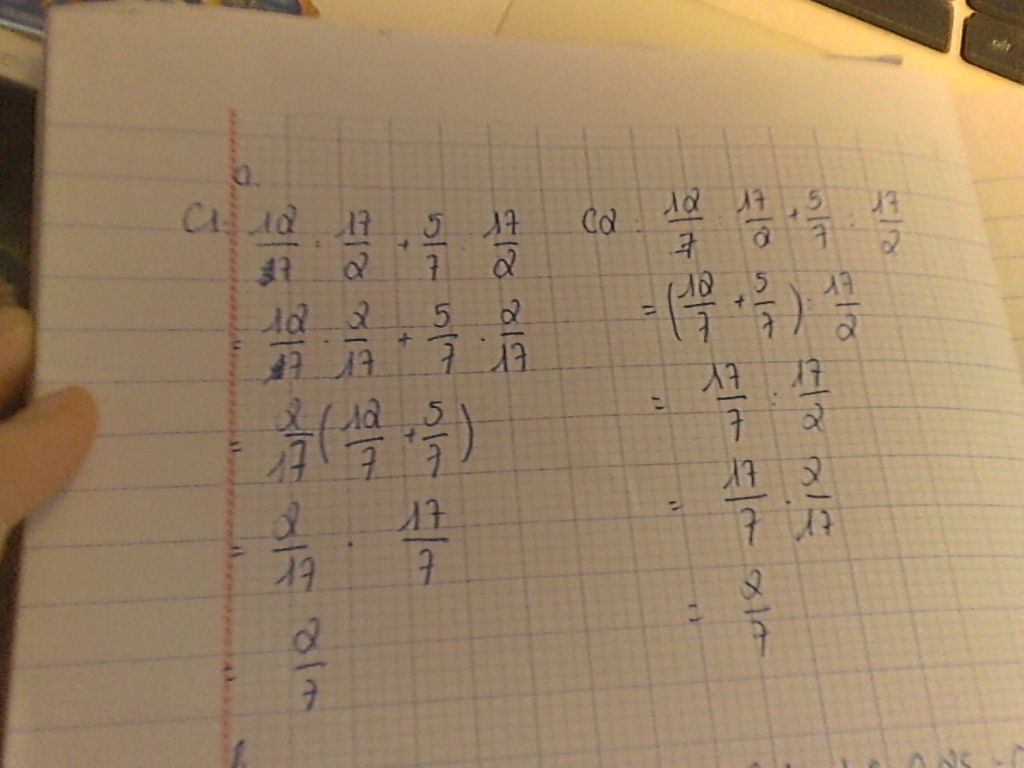 a.
C1: 12/7 : 17/2 + 5/7 : 17/2
= 12/7 . 2/17 + 5/7 . 2/17
= 2/17 ( 12/7 + 5/7 )
= 2/17 . 17/7
= 2/7
C2 : 12/7 : 17/2 + 5/7 : 17/2
= ( 12/7 + 5/7 ) : 17/2
= 17/7 : 17/2
= 17/7 . 2/17
= 2/7